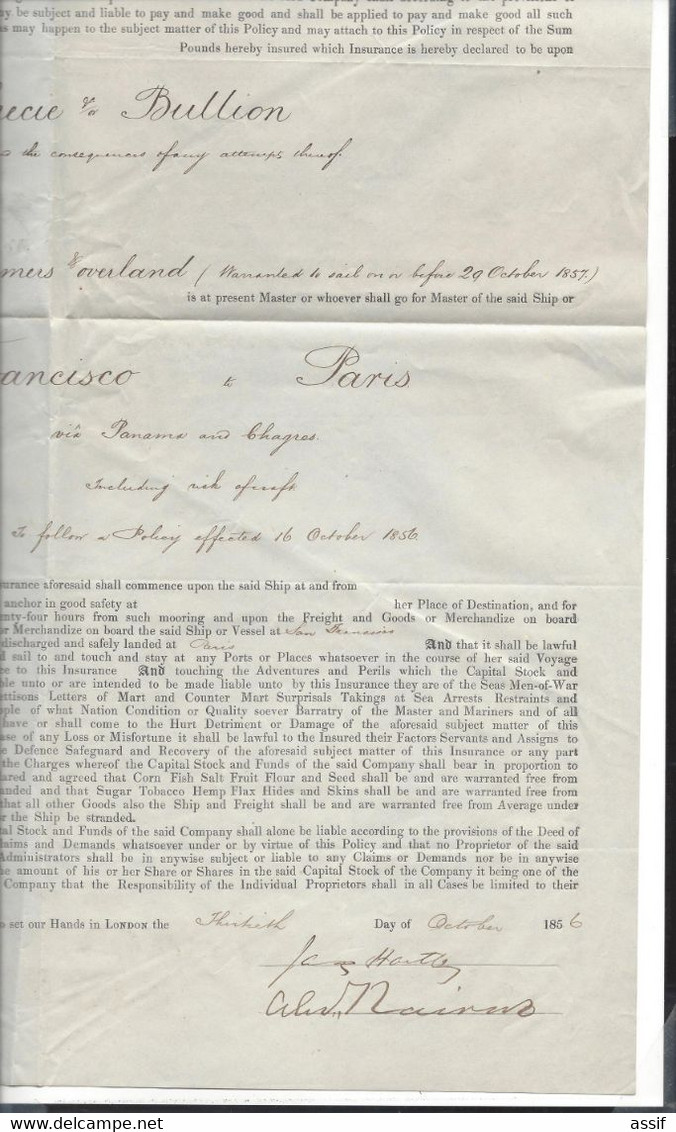 be subject and liable to pay and make good and shall be applied to pay and make good all such
as may happen to the subject matter of this Policy and may attach to this Policy in respect of the Sum
Pounds hereby insured which Insurance is hereby declared to be upon
ecie &/or Bullion
the consequences of any attempts thereof.
mers &/or overland (Warranted to sail on or before 29 October 1857.)
is at present Master or whoever shall go for Master of the said Ship or
ancisco to Paris
viâ Panama and Chagres.
Including risk of craft
To follow a Policy effected 16 October 1856.
surance aforesaid shall commence upon the said Ship at and from
anchor in good safety at her Place of Destination, and for
enty-four hours from such mooring and upon the Freight and Goods or Merchandize on board
or Merchandize on board the said Ship or Vessel at San Francisco
discharged and safely landed at Paris And that it shall be lawful
d sail to and touch and stay at any Ports or Places whatsoever in the course of her said Voyage
ce to this Insurance And touching the Adventures and Perils which the Capital Stock and
ble unto or are intended to be made liable unto by this Insurance they are of the Seas Men-of-War
ettisons Letters of Mart and Counter Mart Surprisals Takings at Sea Arrests Restraints and
ople of what Nation Condition or Quality soever Barratry of the Master and Mariners and of all
have or shall come to the Hurt Detriment or Damage of the aforesaid subject matter of this
ase of any Loss or Misfortune it shall be lawful to the Insured their Factors Servants and Assigns to
e Defence Safeguard and Recovery of the aforesaid subject matter of this Insurance or any part
the Charges whereof the Capital Stock and Funds of the said Company shall bear in proportion to
lared and agreed that Corn Fish Salt Fruit Flour and Seed shall be and are warranted free from
anded and that Sugar Tobacco Hemp Flax Hides and Skins shall be and are warranted free from
that all other Goods also the Ship and Freight shall be and are warranted free from Average under
r the Ship be stranded.
tal Stock and Funds of the said Company shall alone be liable according to the provisions of the Deed of
laims and Demands whatsoever under or by virtue of this Policy and that no Proprietor of the said
Administrators shall be in anywise subject or liable to any Claims or Demands nor be in anywise
he amount of his or her Share or Shares in the said Capital Stock of the Company it being one of the
Company that the Responsibility of the Individual Proprietors shall in all Cases be limited to their
o set our Hands in LONDON the Thirtieth Day of October 1856
Jas Hartley
Alexr. Nairne
assif